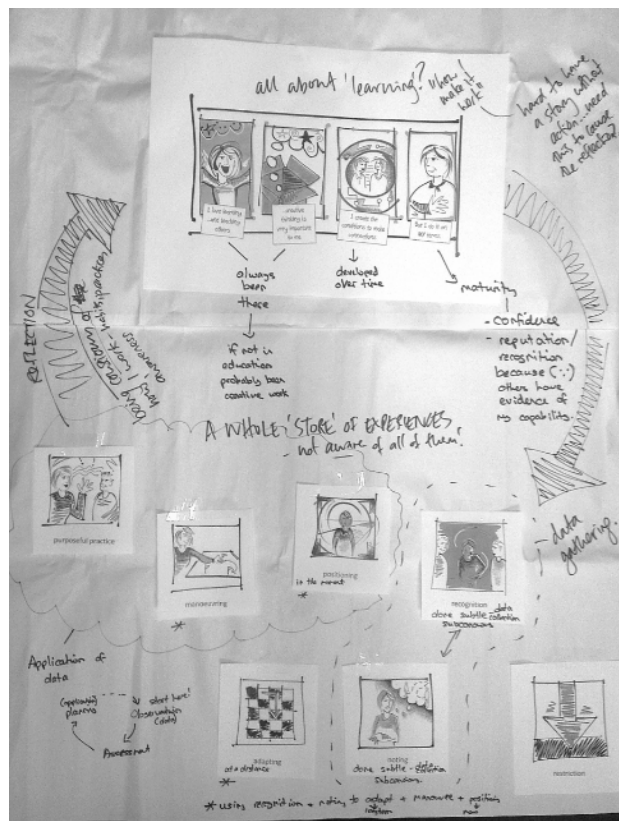 all about 'learning'?
how I
make it
work
hard to have
a story without
action... need
this to cause
the reflection
I love learning
and teaching
others
creative
thinking is
very important
to me
I create the
conditions to make
connections
But I do it on
MY terms
always
been
there
developed
over time
maturity
if not in
education
probably been
creative work
- confidence
- reputation/
recognition
because (∵)
others have
evidence of
my capability.
REFLECTION
being conscious of
how I work - helps practice
awareness
A WHOLE 'STORE' OF EXPERIENCES
- not aware of all of them!
- data
gathering.
purposeful practice
manoeuvring
*
positioning
in the moment
*
recognition
done subtle - data
collection
subconscious
Application of
data
(application)
planning
start here!
Observation
(data)
Assessment
adapting
at a distance
*
noting
done subtle - data
collection
subconscious
restriction
* using recognition + noting to adapt + manoeuvre + position